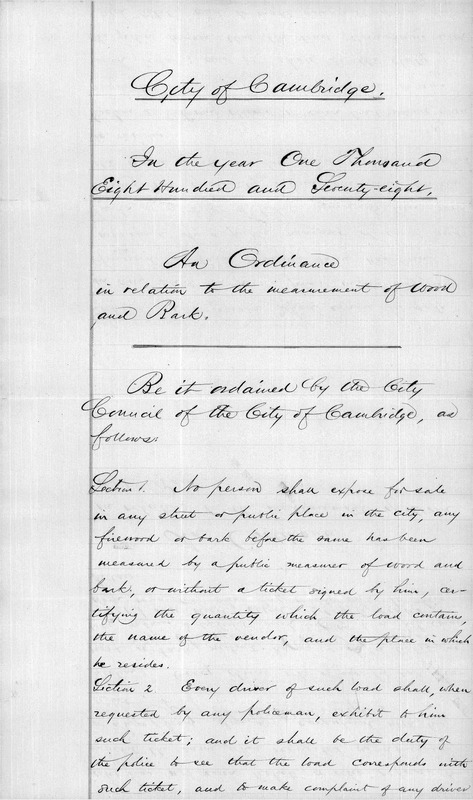 City of Cambridge.
In the year One Thousand
Eight Hundred and Seventy-eight,
An Ordinance
in relation to the measurement of Wood
and Bark.
Be it ordained by the City
Council of the City of Cambridge, as
follows:
Section 1. No person shall expose for sale
in any street or public place in the city, any
firewood or bark before the same has been
measured by a public measurer of wood and
bark, or without a ticket signed by him, cer-
tifying the quantity which the load contains,
the name of the vendor, and the place in which
he resides.
Section 2. Every driver of such load shall, when
requested by any policeman, exhibit to him
such ticket; and it shall be the duty of
the police to see that the load corresponds with
such ticket, and to make complaint of any driver